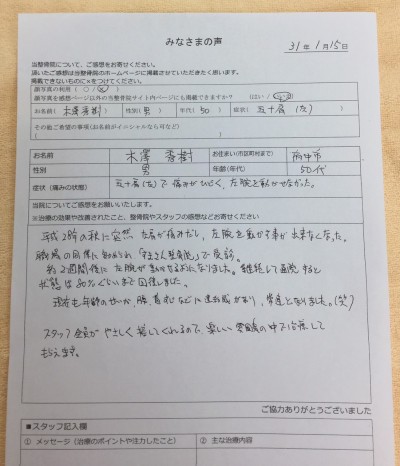 みなさまの声
31年1月15日
当整骨院について、ご感想をお寄せください。
頂いたご感想は当整骨院のホームページに掲載させていただきたく思います。
掲載できないものに×をつけてください。
顔写真の利用 ( ○ / × )
顔写真を感想ページ以外の当整骨院サイト内ページにも掲載できますか? (はい / いいえ)
お名前( 木澤香樹 ) 性別( 男 ) 年代( 50 ) 症状( 五十肩(左) )
その他ご要望の事項(お名前がイニシャルなら可など)
お名前 木澤 香樹 お住まい(市区町村まで) 府中市
性別 男 年齢(年代) 50代
症状(痛みの状態) 五十肩(左)で痛みがひどく、左腕を動かせなかった。
当院についてご感想をお願いいたします。
※治療の効果や改善されたこと、整骨院やスタッフの感想などお寄せください
平成28年の秋に突然 左肩が痛みだし、左腕を動かす事が出来なくなった。
職場の同僚に勧められ、「整骨院」で受診。
約2週間後に左腕が動かせるようになりました。継続して通院すると
状態は80%ぐらいまで回復しました。
現在も年齢のせいか、腰、首などに違和感があり、常連となりました。(笑)
スタッフ全員がやさしく接してくれるので、楽しい雰囲気の中で治療して
もらえます。
ご協力ありがとうございました
■スタッフ記入欄
① メッセージ(治療のポイントや注力したこと) ② 主な治療内容